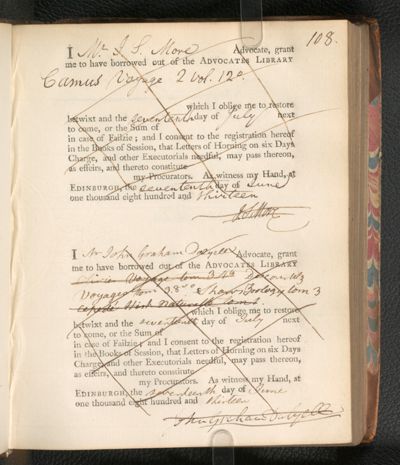 108.
I Mr. J. S. More Advocate, grant
me to have borrowed out of the ADVOCATES LIBRARY
Camus Voyage 2 Vol. 12o.
which I oblige me to restore
betwixt and the seventeenth day of July next
to come, or the Sum of
in case of Failzie; and I consent to the registration hereof
in the Books of Session, that Letters of Horning on six Days
Charge, and other Executorials needful, may pass thereon,
as effeirs, and thereto constitute
my Procurators. As witness my Hand, at
EDINBURGH, the seventeenth day of June
one thousand eight hundred and thirteen
J. S. More
I Mr John Graham Dalyell Advocate, grant
me to have borrowed out of the ADVOCATES LIBRARY
Voyage tom 3 4o
Voyages tom 3 8vo & Shaws Zoology tom 3
tom
which I oblige me to restore
betwixt and the seventeenth day of July next
to come, or the Sum of
in case of Failzie; and I consent to the registration hereof
in the Books of Session, that Letters of Horning on six Days
Charge, and other Executorials needful, may pass thereon,
as effeirs, and thereto constitute
my Procurators. As witness my Hand, at
EDINBURGH, the seventeenth day of June
one thousand eight hundred and thirteen
John Graham Dalyell